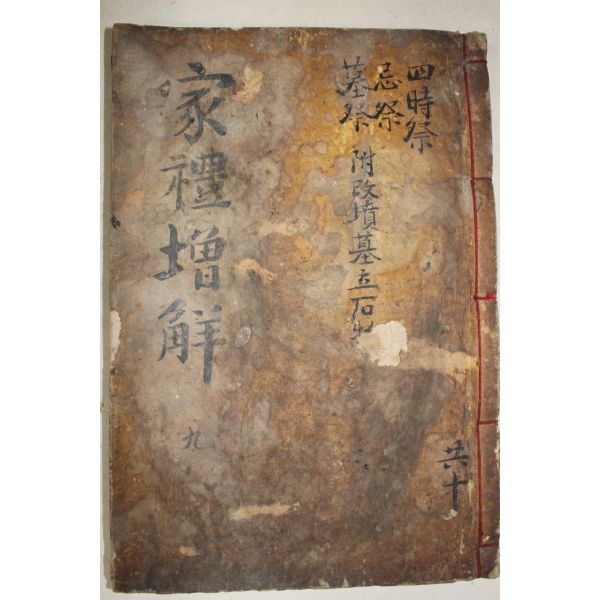 四時祭
忌祭
墓祭 附改墳墓立石
共十
家禮增解
九